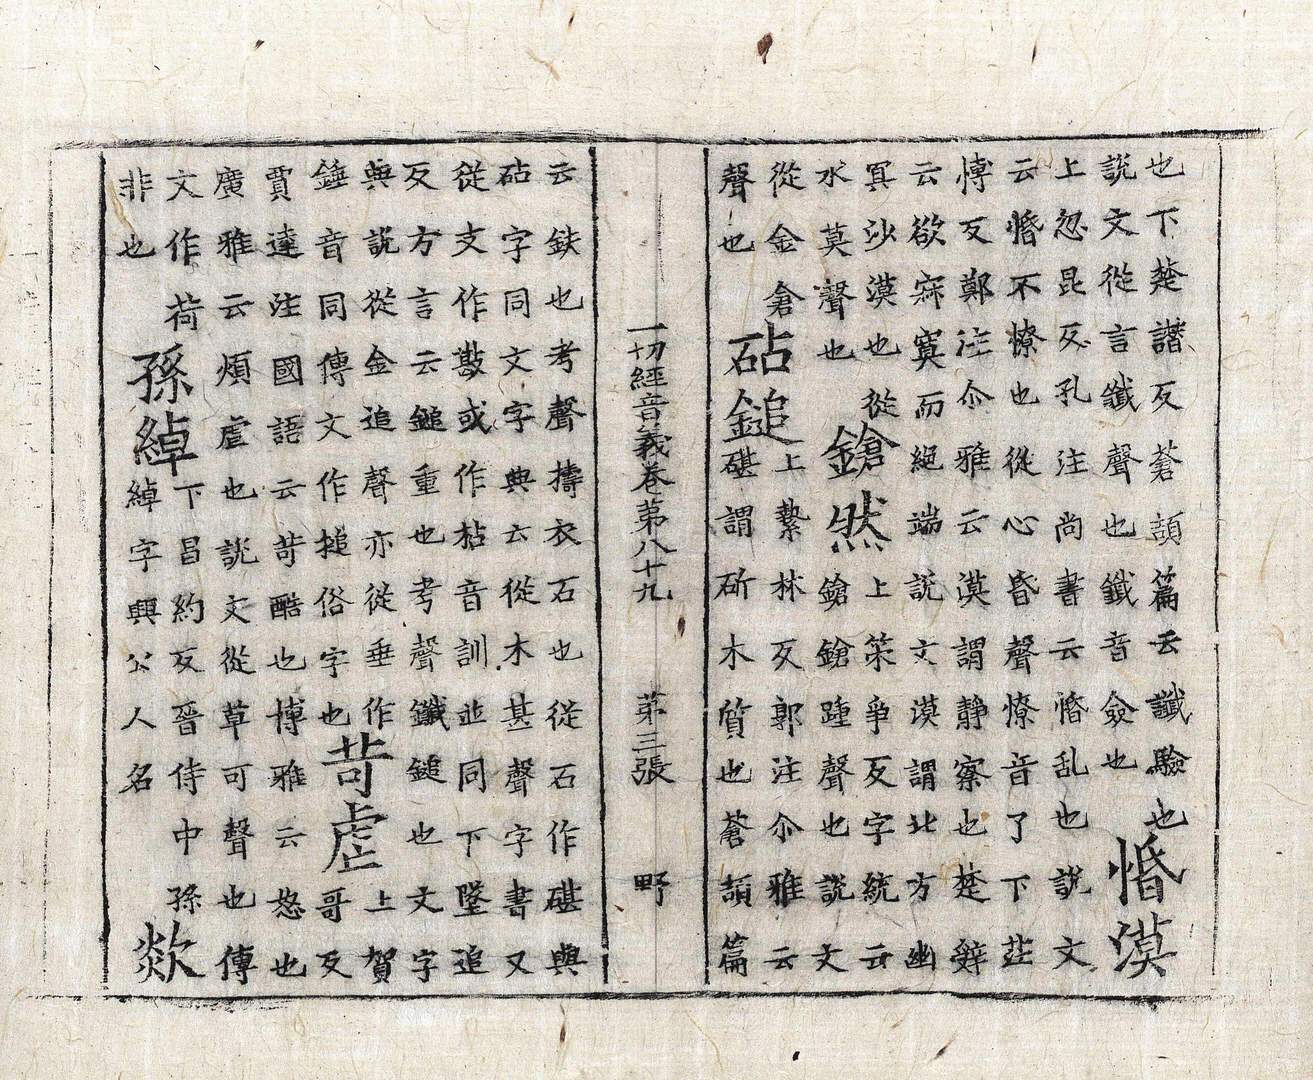 也下楚譖反蒼頡篇云讖驗也
說文從言韱聲也韱音僉也
惛漠
上忽昆反孔注尚書云惛乱也說文
云惛不憭也從心昏聲憭音了下茫
愽反鄭注尒雅云漠謂静寮也楚辤
云欲寂寞而絕端說文漠謂北方幽
冥沙漠也從
水莫聲也
鎗然
上策爭反字統云
鎗鎗踵聲也說文
從金倉
聲也
砧鎚
上縶林反郭注尒雅云
碪謂斫木質也蒼頡篇
一切經音義卷第八十九 第三張 野
云鈇也考聲擣衣石也從石作碪與
砧字同文字典云從木甚聲字書又
從攴作㪣或作枮音訓並同下墜追
反方言云鎚重也考聲鐵鎚也文字
典說從金追聲亦從垂作
錘音同傳文作搥俗字也
苛虐
上賀
哥反
賈逵注國語云苛酷也博雅云怒也
廣雅云煩虐也說文從草可聲也傳
文作荷
非也
孫綽
下昌約反晉侍中孫
綽字興公人名
欻